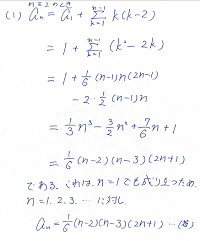 n≧2のとき
(1) aₙ = a₁ + Σ_{k=1}^{n-1} k(k-2)
= 1 + Σ_{k=1}^{n-1} (k²-2k)
= 1 + 1/6 (n-1)n(2n-1)
- 2・1/2 (n-1)n
= 1/3 n³ - 3/2 n² + 7/6 n + 1
= 1/6 (n-2)(n-3)(2n+1)
である. これは, n=1でも成り立つため,
n=1.2.3.… に対し
aₙ = 1/6 (n-2)(n-3)(2n+1) …